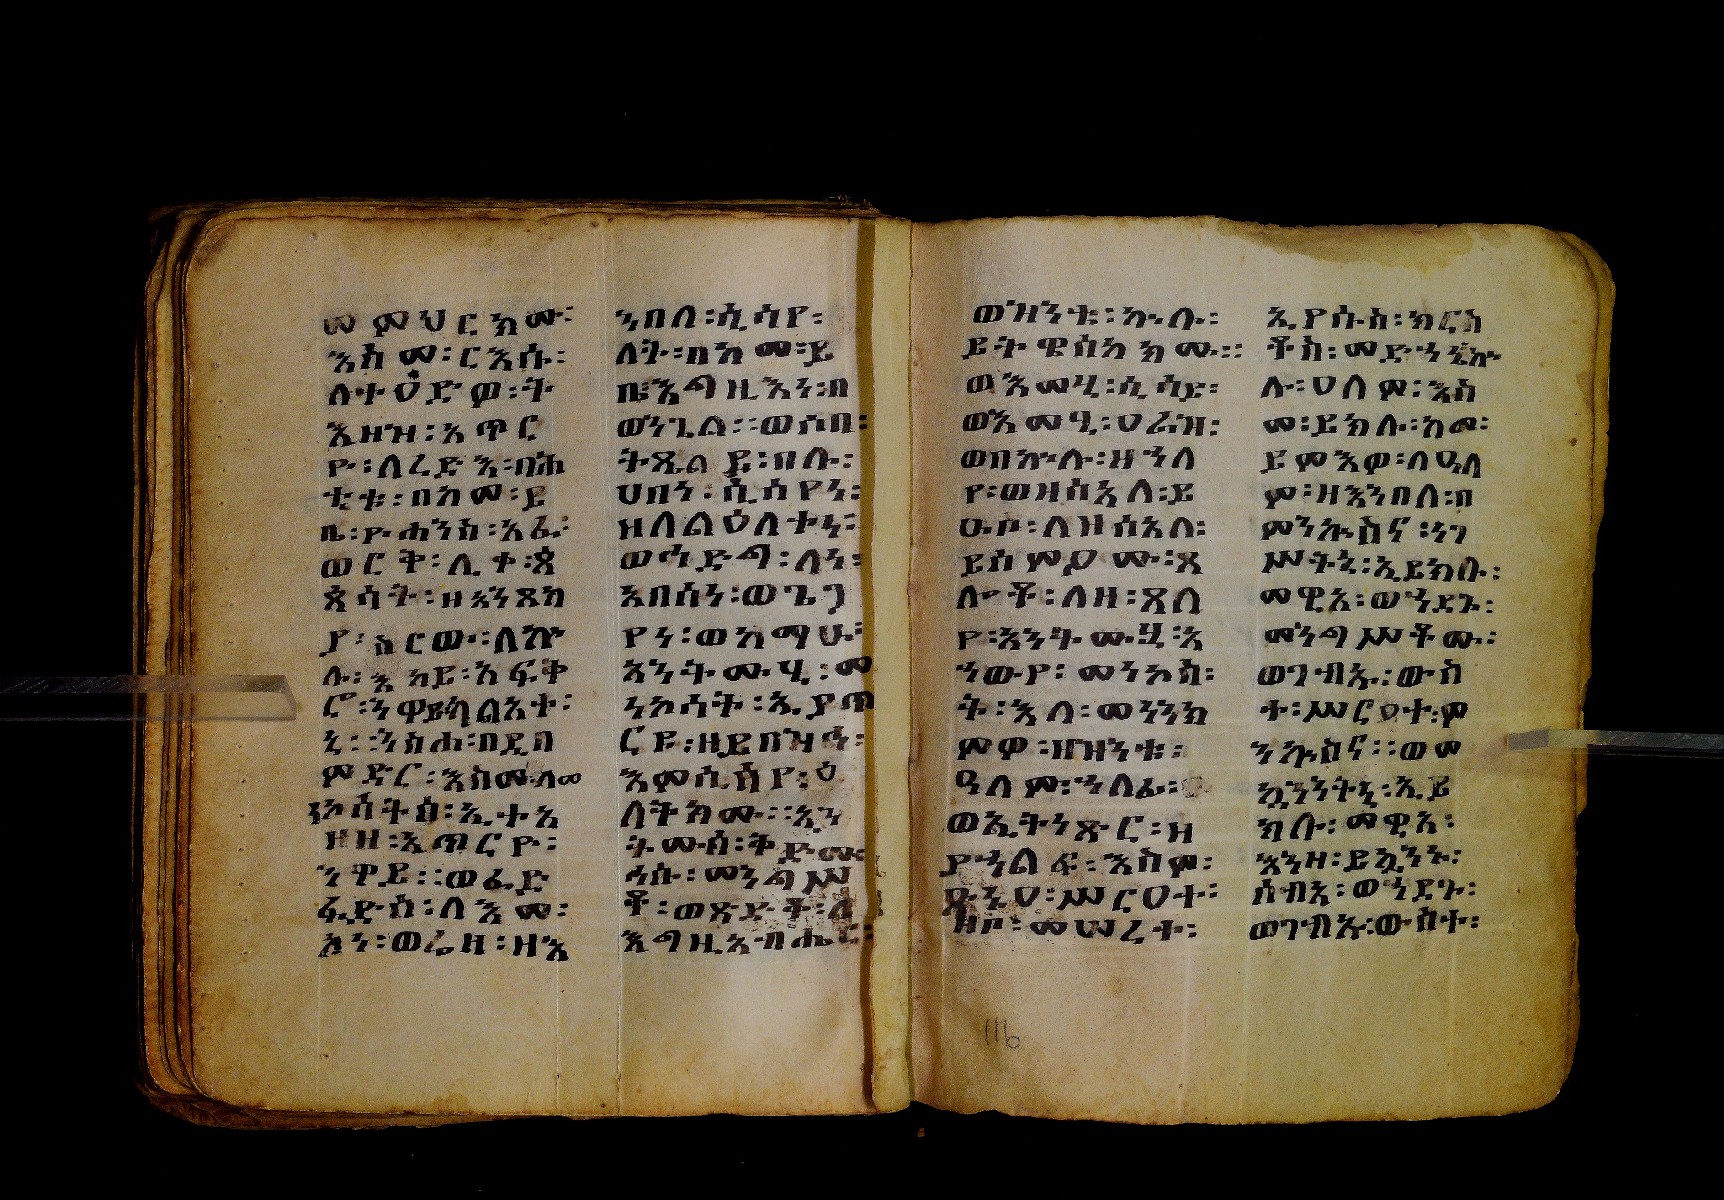 መ ምህርክሙ፡
እስመ፡ርእሱ፡
ለተዐድዎ፡ት
እዛዝ፡አጥር
ዮ፡ለረድእ፡በሕ
ቲቱ፡በከመ፡ይ
ቤ፡ዮሐንስ፡አፈ፡
ወርቅ፡ሊቀ፡ጳ
ጳሳት፡ዘአንጾኪ
ያ፡ስርወ፡ለኵ
ሉ፡እኪይ፡አፍቅ
ሮ፡ንዋይካልእተ፡
ኒ፡፡ንስሐ፡በዲበ
ምድር፡እስመ፡ለመ
ነኮሳትሰ፡ኢተአ
ዘዘ፡አጥርዮ፡
ንዋይ፡፡ወፈድ
ፋድሰ፡ለእመ፡
አነ፡ወሬዘ፡ዘእ
ንበለ፡ሲሳየ፡
ለት፡በከመ፡ይ
ቤ፡እግዚእነ፡በ
ወንጌል፡፡ወሶበ፡
ትጼልይ፡በሉ፡
ሀበነ፡ሲሳየነ፡
ዘለልዕለተነ፡
ወኅድግ፡ለነ፡
አበሳነ፡ወጌጋ
የነ፡ወአማሁ፡
አንትሙሂ፡መ
ነኮሳት፡ኢያጥ
ርዩ፡ዘይበዝኅ፡
እምሲሳየ፡ዕ
ለትክሙ፡፡አን
ትሙሰ፡ቅድመ
ኅሱ፡መንግሥ
ቶ፡ወጽድቆ፡ለ
እግዚአብሔር፡
ወዝንቱ፡ኵሉ፡
ይትዌሰክክሙ፡፡
ወእመሂ፡ሲሳይ፡
ወእመሂ፡ሀሬዝ፡
ወበኵሉ፡ዘንለ
የ፡ወዘሰአለ፡ይ
ሁቦ፡ለዝሰአለ፡
ይሰምዖሙ፡ጸ
ሎቶ፡ለዘ፡ጸለ
የ፡አንትሙሂ፡አ
ኀውየ፡መነኮስ፡
ት፡እለ፡መነንክ
ምዎ፡ዘዝንቱ፡
ዓለም፡ኀላፊ፡
ወኢትነጽር፡ዘ
ያኀልፍ፡እስመ፡
ጽኒሀ፡ሥርዐተ፡
ዘቦ፡መሠረተ፡
ኢየሱስ፡ክርስ
ቶስ፡መድኀኔኵ
ሉ፡ዐለም፡እስ
መ፡ይክሉ፡ከመ፡
ይምእዎ፡ለዓለ
ም፡ዘእንበለ፡በ
ምንኵስና፡ነገ
ሥትኒ፡ኢይክሉ፡
መዊእ፡ወኀደጉ፡
መንግሥቶሙ፡
ወገብኡ፡ውስ
ተ፡ሥርዐተ፡ም
ንኵስና፡፡ወመ
ኳንንትኒ፡ኢይ
ክሉ፡መዊእ፡
እንዘ፡ይኴንኑ፡
ሰብአ፡ወኀደጉ፡
ወገብኡ፡ውስተ፡
116